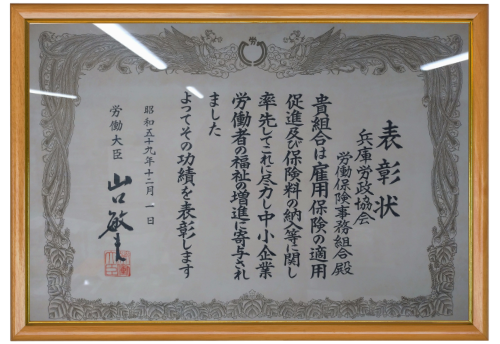 表彰状
兵庫労政協会
労働保険事務組合殿
貴組合は雇用保険の適用
促進及び保険料の納入等に関し
率先してこれに尽力し中小企業
労働者の福祉の増進に寄与され
ました
よってその功績を表彰します
昭和五十九年十二月一日
労働大臣
山口敏夫